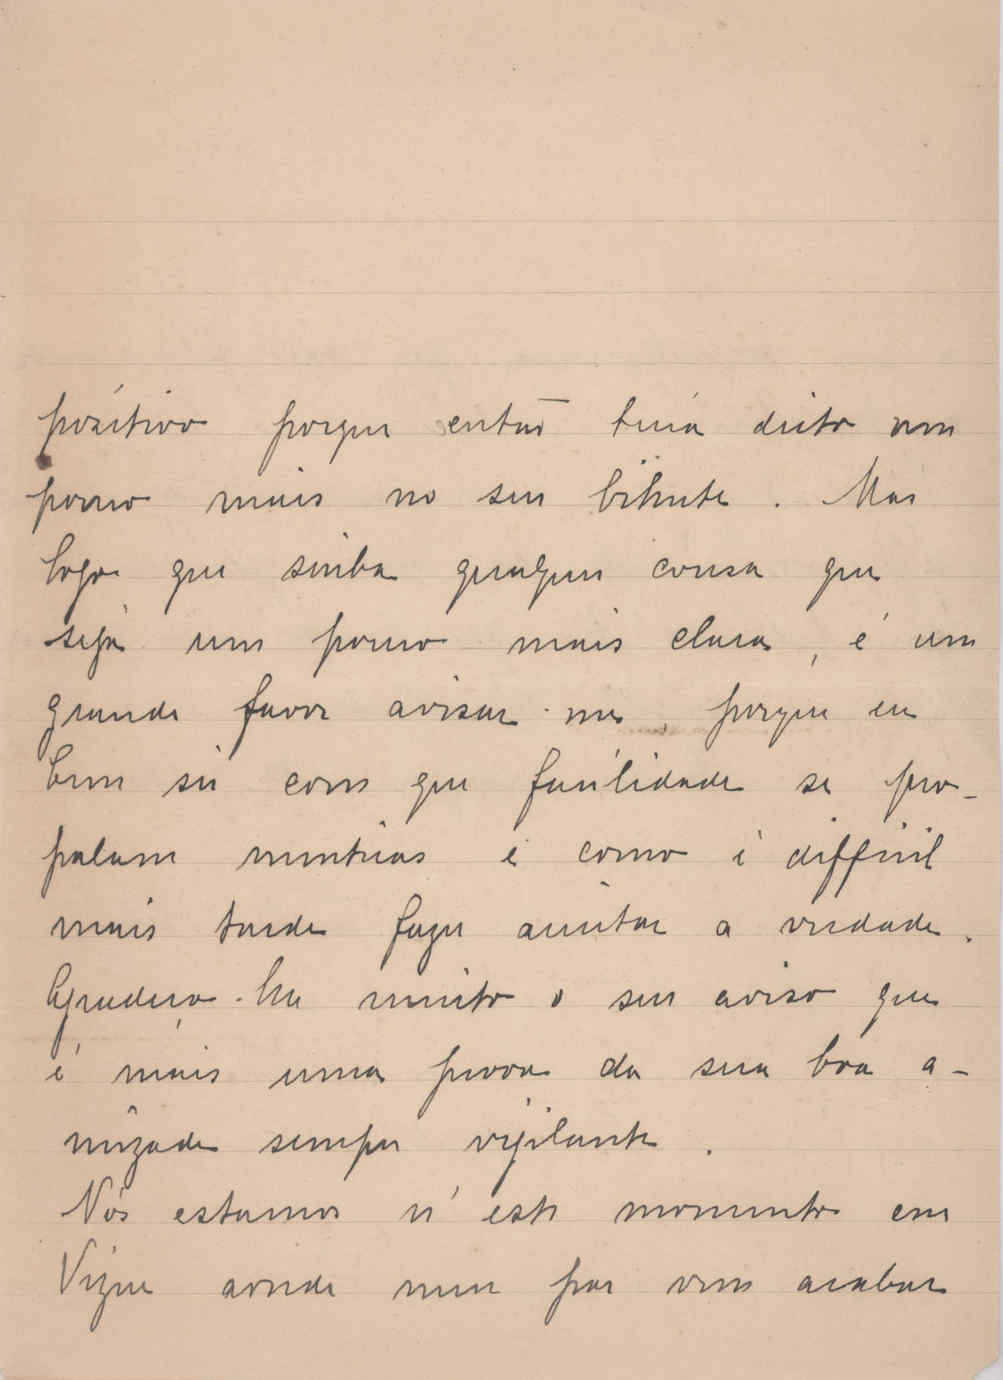 positivo porque então teria dicto um
pouco mais no seu bilhete. Mas
logo que saiba qualquer cousa que
seja um pouco mais clara, é um
grande favor avisar-me, porque eu
bem sei com que facilidade se pro-
palam mentiras e como é difficil
mais tarde fazer aceitar a verdade.
Agradeço-lhe muito o seu aviso que
é mais uma prova da sua boa a-
mizade sempre vigilante.
Nós estamos n'este momento em
Vizeu aonde meu pae vem acabar